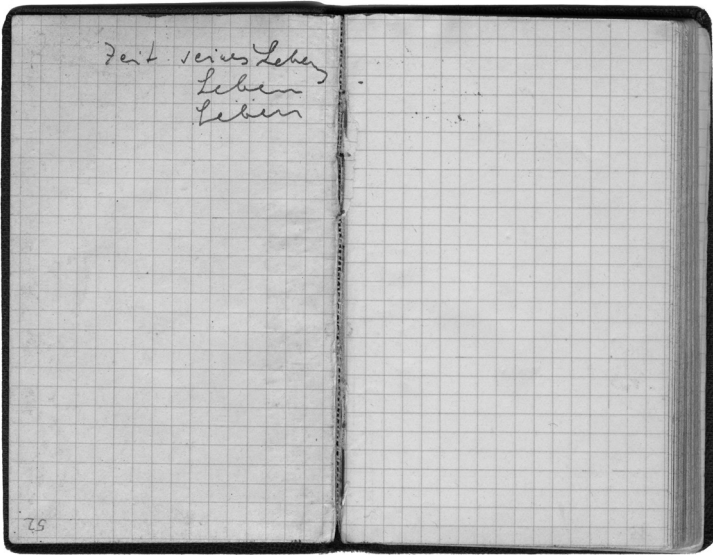 Zeit seines Lebens
Leben
Leben
52